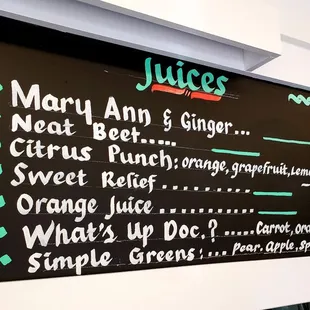 Juices
Mary Ann & Ginger...
Neat Beet.....
Citrus Punch: orange, grapefruit, Lem
Sweet Relief..........
Orange Juice............
What's Up Doc.? .....Carrot, ora
Simple Greens: ... Pear. Apple, Sp